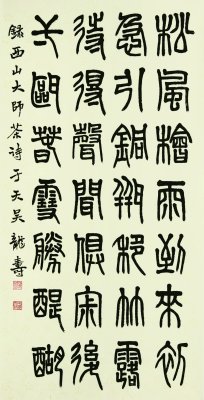 松風檜雨到來初
急引銅缾移竹露
待得聲聞俱寂後
弌甌春雪勝醍醐
錄西山大師茶诗于天吴龍壽